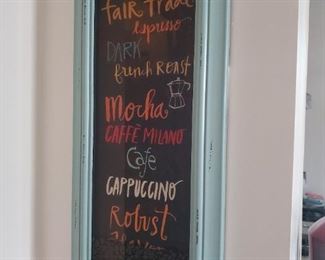 fair trade
espresso
DARK
french ROAST
Mocha
CAFFÈ MILANO
Cafe
CAPPUCCINO
Robust